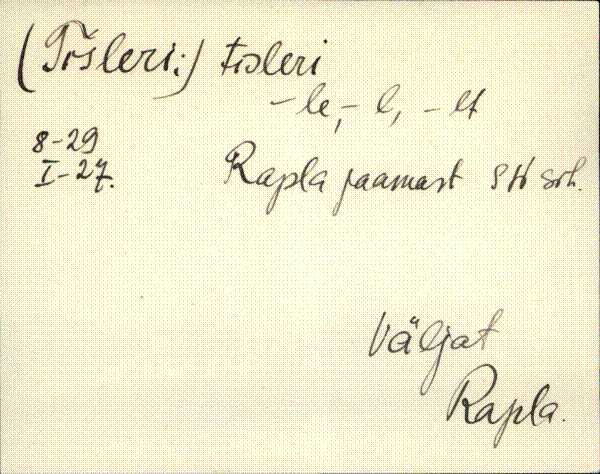 (Tišleri:) tisleri
-le, - l, - lt
8-29
I-27.
Rapla jaamast
Väljat
Rapla.